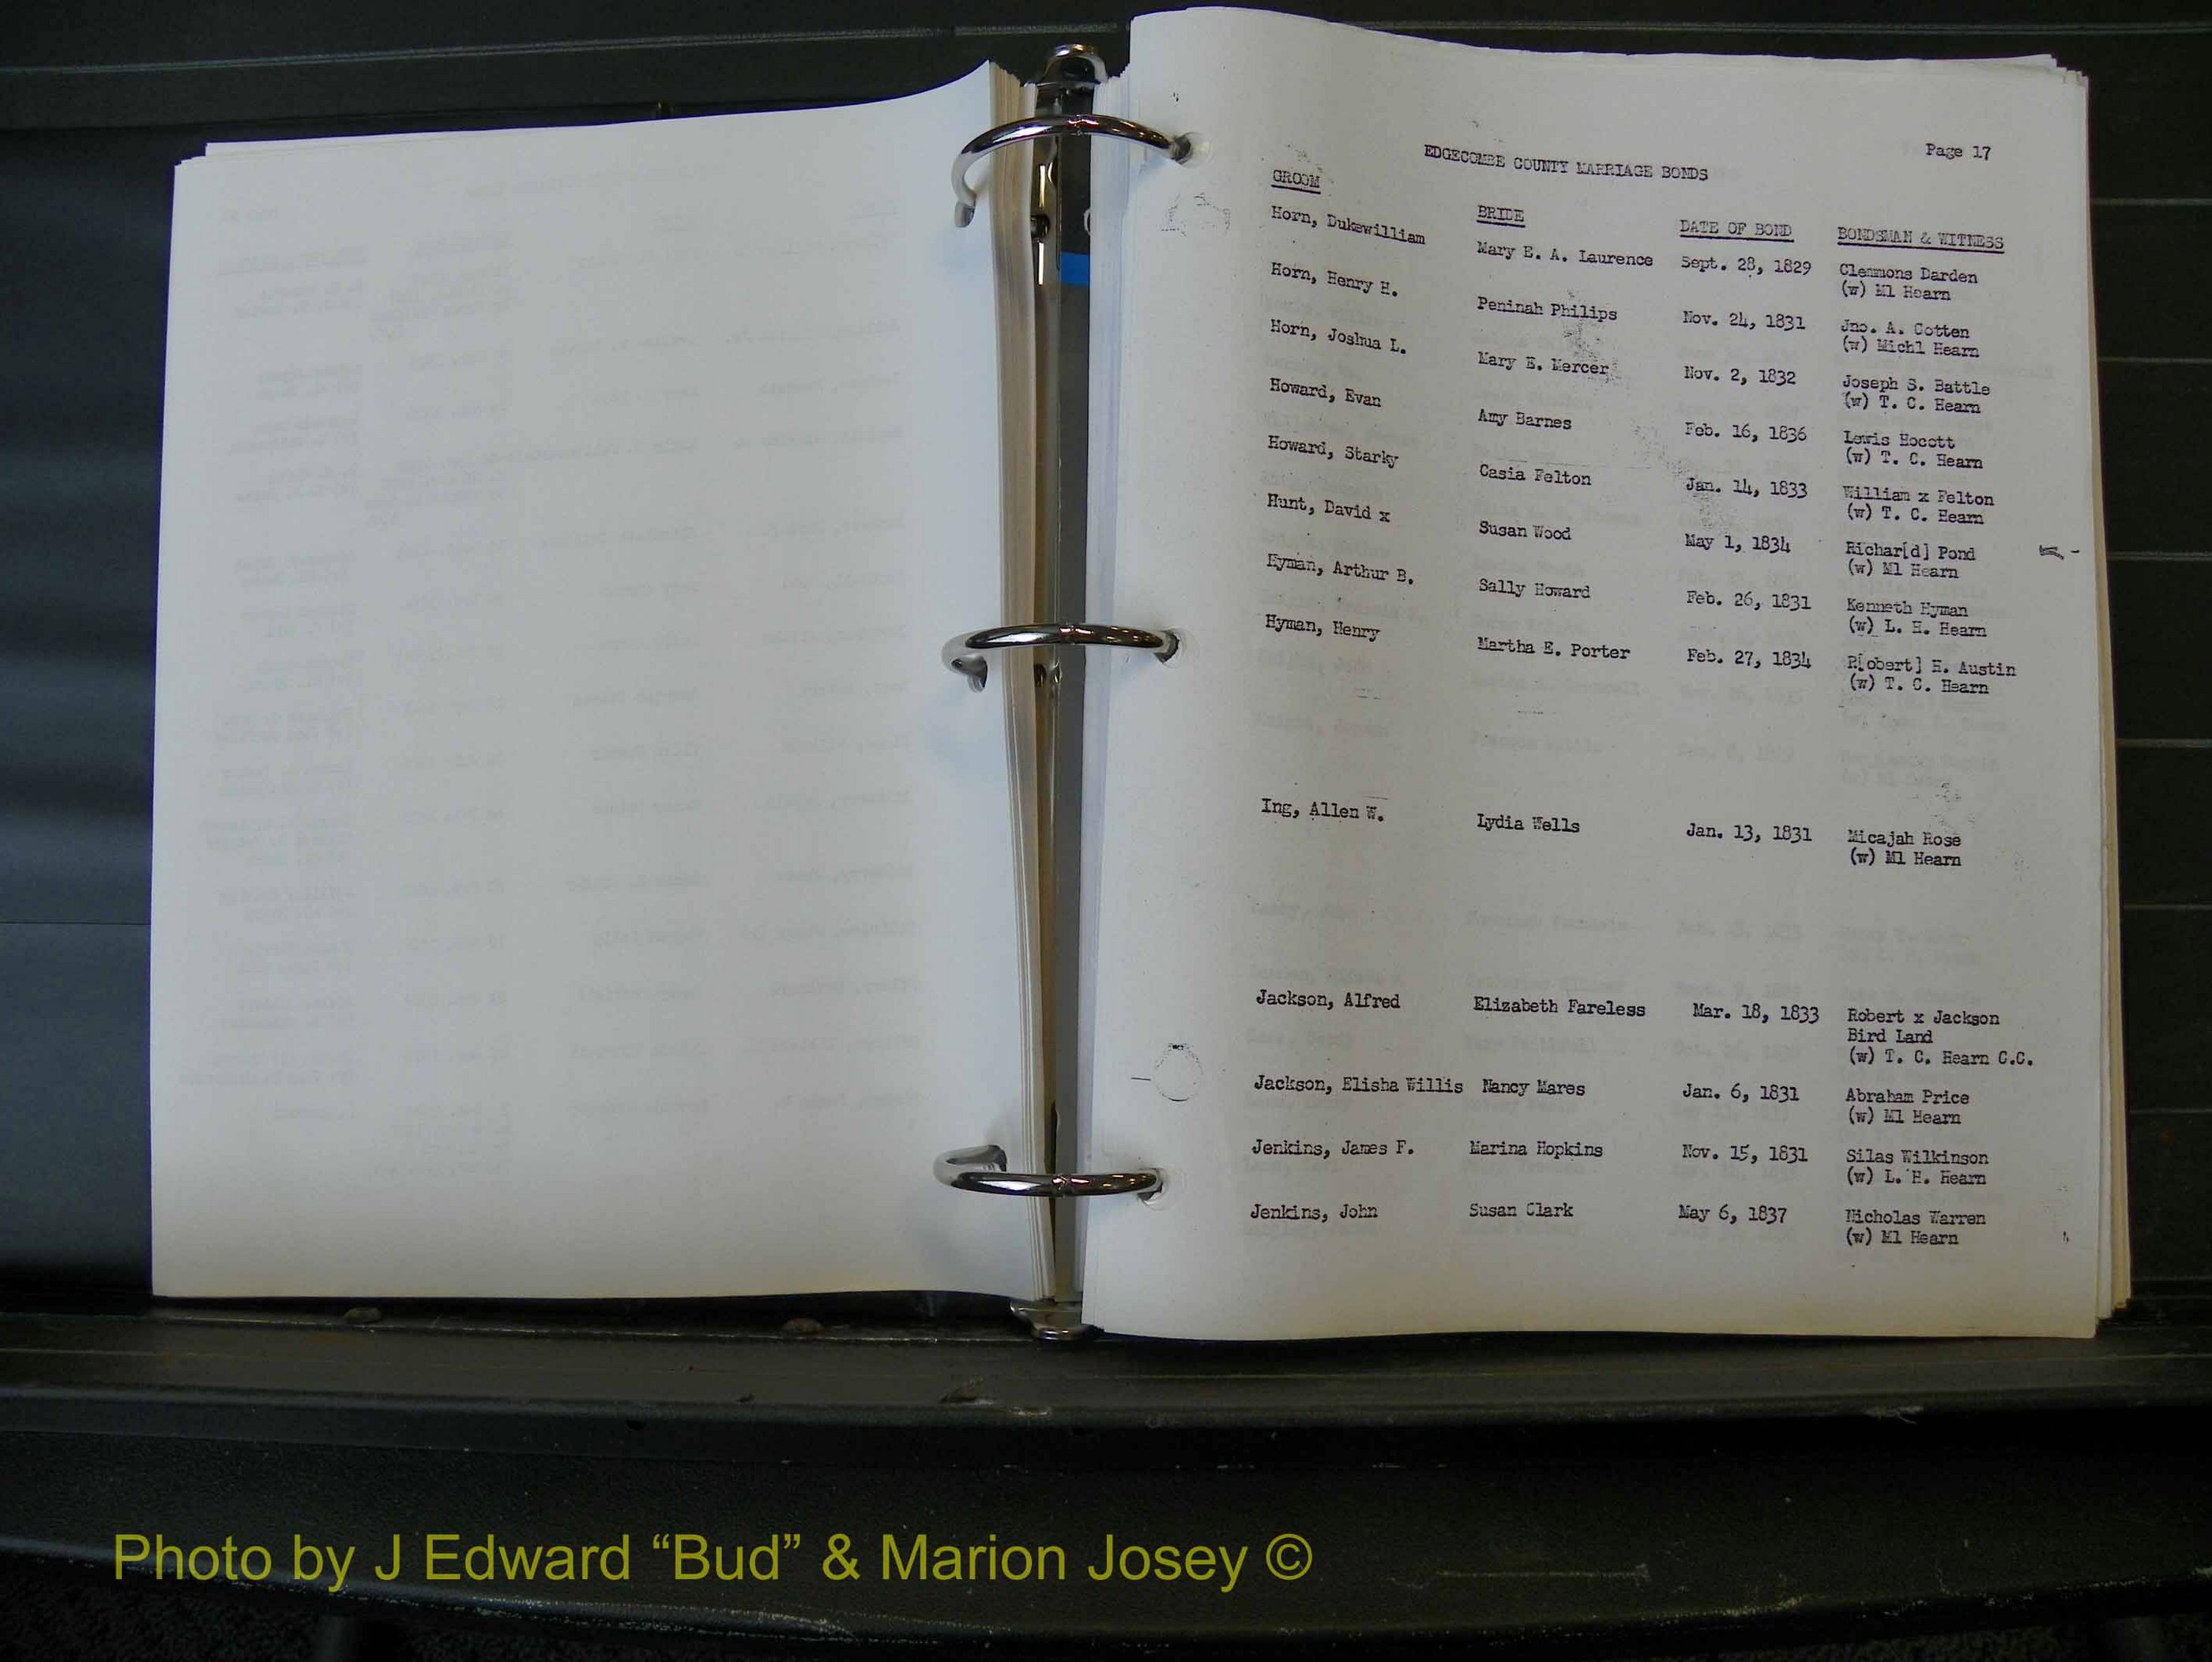 Page 17
EDGECOMBE COUNTY MARRIAGE BONDS
GROOM BRIDE DATE OF BOND BONDSMAN & WITNESS
Horn, Dukewilliam Mary E. A. Laurence Sept. 28, 1829 Clemmons Darden
(w) Ml Hearn
Horn, Henry H. Peninah Philips Nov. 24, 1831 Jno. A. Cotten
(w) Michl Hearn
Horn, Joshua L. Mary E. Mercer Nov. 2, 1832 Joseph S. Battle
(w) T. C. Hearn
Howard, Evan Amy Barnes Feb. 16, 1836 Lewis Hocott
(w) T. C. Hearn
Howard, Starky Casia Felton Jan. 14, 1833 William x Felton
(w) T. C. Hearn
Hunt, David x Susan Wood May 1, 1834 Richar[d] Pond
(w) Ml Hearn
Hyman, Arthur B. Sally Howard Feb. 26, 1831 Kenneth Hyman
(w) L. H. Hearn
Hyman, Henry Martha E. Porter Feb. 27, 1834 R[obert] H. Austin
(w) T. C. Hearn
Ing, Allen W. Lydia Wells Jan. 13, 1831 Micajah Rose
(w) Ml Hearn
Jackson, Alfred Elizabeth Fareless Mar. 18, 1833 Robert x Jackson
Bird Land
(w) T. C. Hearn C.C.
Jackson, Elisha Willis Nancy Mares Jan. 6, 1831 Abraham Price
(w) Ml Hearn
Jenkins, James F. Marina Hopkins Nov. 15, 1831 Silas Wilkinson
(w) L. H. Hearn
Jenkins, John Susan Clark May 6, 1837 Nicholas Warren
(w) Ml Hearn
Photo by J Edward “Bud” & Marion Josey ©